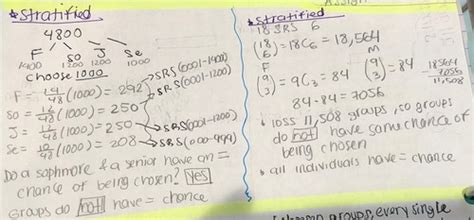 *stratified
4800
F So J Se
1400 1200 1200 1000
choose 1000
F = 14/48 (1000) = 292 → SRS (0001-1400)
So = 12/48 (1000) = 250 → SRS (0001-1200)
J = 12/48 (1000) = 250 → SRS (001-1200)
Se = 10/48 (1000) = 208 → SRS (000-999)
Do a sophmore & a senior have an =
chance of being chosen? yes
groups do not have = chance
*stratified
18 SRS 6
(18 6) = 18C6 = 18,564
F M
(9 3) = 9C3 = 84 (9 3) = 84
18564
- 7056
11,508
84·84 = 7056
loss 11,508 groups, so groups
do not have same chance of
being chosen
• all individuals have = chance
groups, every single